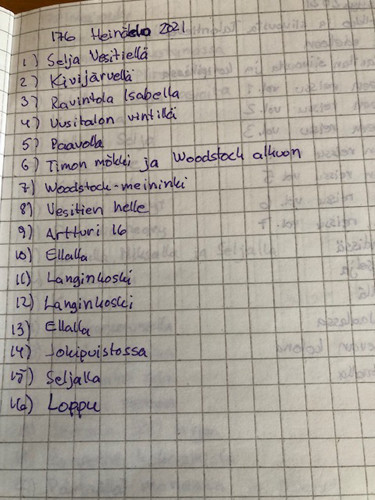 176 Heinäkuu 2021
1) Selja Vesitiellä
2) Kivijärvellä
3) Ravintola Isabella
4) Uusitalon vintillä
5) Paavolla
6) Timon mökki ja Woodstock alkuun
7) Woodstock-meininki
8) Vesitien helle
9) Artturi 16
10) Ellalla
11) Langinkoski
12) Langinkoski
13) Ellalla
14) Jokipuistossa
15) Seljalla
16) Loppu